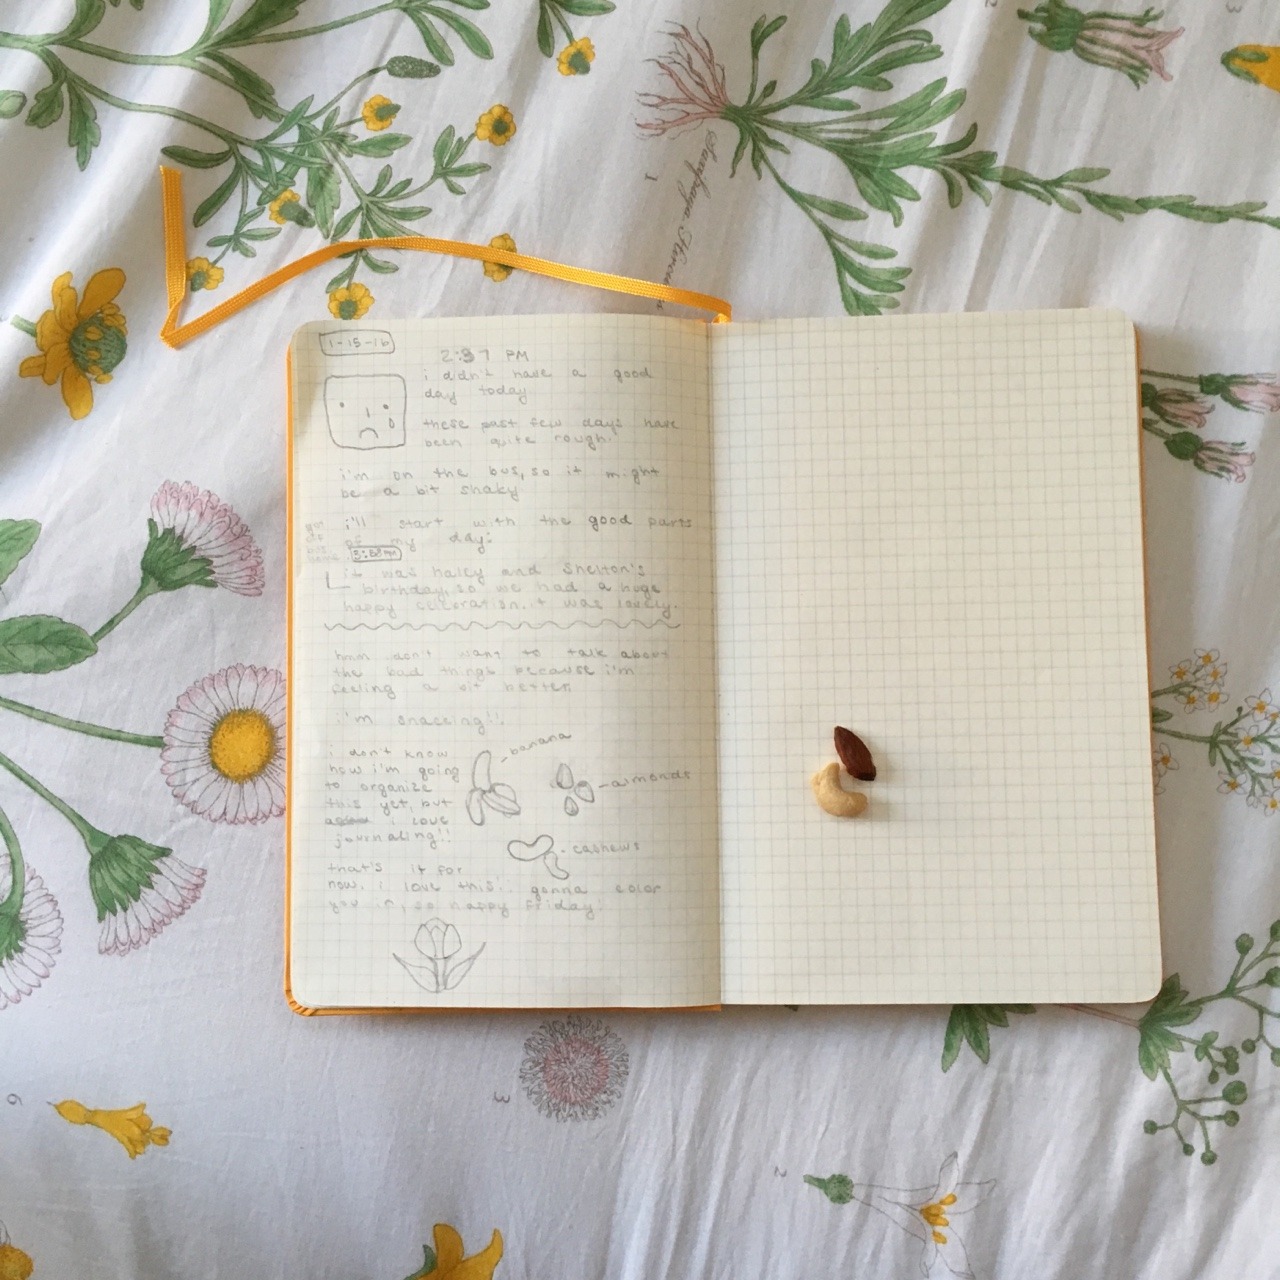 1-15-16
2:37 PM
i didn't have a good
day today
these past few days have
been quite rough.
i'm on the bus, so it might
be a bit shaky
i'll start with the good parts
of my day:
got
off
bus
it was haley and Shelton's
birthday, so we had a huge
happy celebration. it was lovely.
hmm don't want to talk about
the bad things because i'm
feeling a bit better
i'm snacking!!
i don't know
how i'm going
to organize
this yet, but
i love
journaling!!
banana
almonds
cashews
that's it for
now. i love this! gonna color
you in, so happy Friday!
Saxifraga
1
2
3
3
6
2